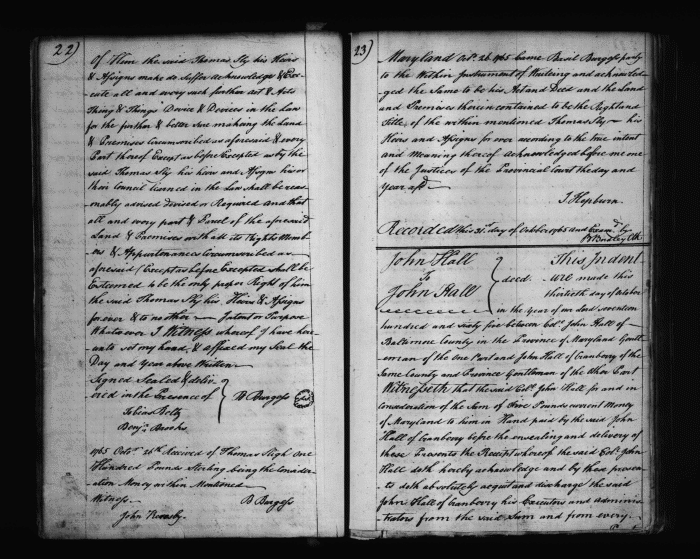 22)
Of Him the said Thomas Sly his Heirs
& Assigns make do Suffer acknowledge & Exe-
cute all and every such further act & Acts
Thing & Things Device & Devices in the Law
for the further & better sure making the Land
& Premises Circumscribed as aforesaid & every
Part thereof Except as before Excepted as by the
said Thomas Sly his heirs and Assigns his or
their Council learned in the Law shall be reas-
onably advised devised or Required and that
all and every part & Parcel of the aforesaid
Land & Premises with all its Rights Memb-
ers & Appurtenances Circumscribed as
aforesaid (Except as before Excepted shall be
Esteemed to be the only proper Right of him
the said Thomas Sly his, Heirs & Assigns
for ever & to no other Intent or Purpose
Whatsoever I Witness whereof I have here
unto set my hand, & affixed my Seal the
Day and Year above Written
Signed Sealed & deliv-
ered in the Presence of } B Burgess
Tobias
Benj.a Brooks
1765 Octo.r 26th Received of Thomas Sligh one
Hundred Pounds Sterling being the Consider-
ation Money within Mentioned
Witness B Burgess
John
23)
Maryland Octo.r 26 1765 Came Basil Burgess party
to the Within Instrument of Writing and acknowled-
ged the Same to be his, Act and Deed and the Land
and Premises therein contained to be the Right and
Title, of the within mentioned Thomas Sly his
Heirs and Assigns for ever according to the true intent
and Meaning thereof acknowledged before me one
of the Justices of the Provincial Court the day and
Year afsd
J Hepburn
Recorded this 31st day of October 1765 and Exam.d by
Clk
John Hall
To } deed
John Hall
This Indent
ure made this
thirtieth day of October
in the Year of our Lord seventeen
hundred and Sixty five between Col.o John Hall of
Baltimore County in the Province of Maryland Gentl-
eman of the one Part and John Hall of Cranberry of the
Same County and Province Gentleman of the Other Part
Witnesseth that the said Col.o John Hall for and in
Consideration of the Sum of Five Pounds current Money
of Maryland to him in Hand paid by the said John
Hall of Cranberry before the ensealing and delivery of
these Presents the Receipt whereof the said Col.o John
Hall doth hereby acknowledge and by these presen-
ts doth absolutely acquit and discharge the said
John Hall of Cranberry his Executors and adminis-
trators from the said Sum and from every